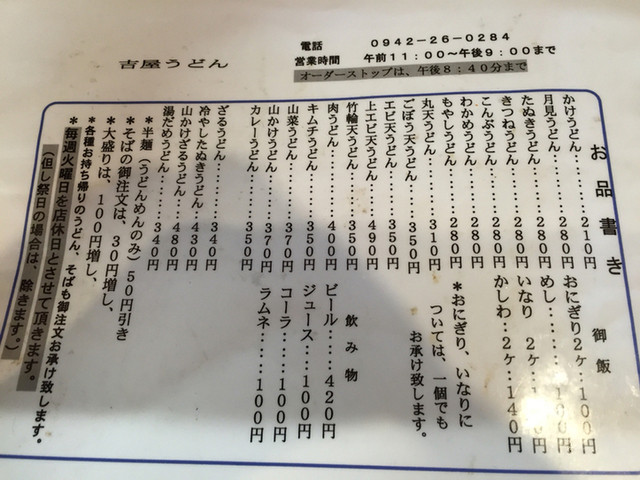 吉屋うどん
電話　0942-26-0284
営業時間　午前11:00～午後9:00まで
オーダーストップは、午後8:40分まで
お品書き
かけうどん………210円
月見うどん………280円
たぬきうどん……280円
きつねうどん……280円
こんぶうどん……280円
わかめうどん……280円
もやしうどん……280円
丸天うどん………310円
ごぼう天うどん…350円
エビ天うどん……350円
上エビ天うどん…490円
竹輪天うどん……350円
肉うどん…………400円
キムチうどん……350円
山菜うどん………370円
山かけうどん……370円
カレーうどん……350円
御飯
おにぎり2ヶ‥100円
めし
いなり　2ヶ
かしわ‥2ヶ‥140円
*おにぎり、いなりに
ついては、一個でも
お承け致します。
飲み物
ビール‥‥‥420円
ジュース‥‥100円
コーラ‥‥‥100円
ラムネ‥‥‥100円
ざるうどん…………340円
冷やしたぬきうどん…430円
山かけざるうどん……480円
湯だめうどん…………340円
*半麺(うどんめんのみ)50円引き
*そばの御注文は、30円増し、
*大盛りは、100円増し、
*各種お持ち帰りのうどん、そばも御注文お承け致します。
*毎週火曜日を店休日とさせて頂きます。
(但し祭日の場合は、除きます。)